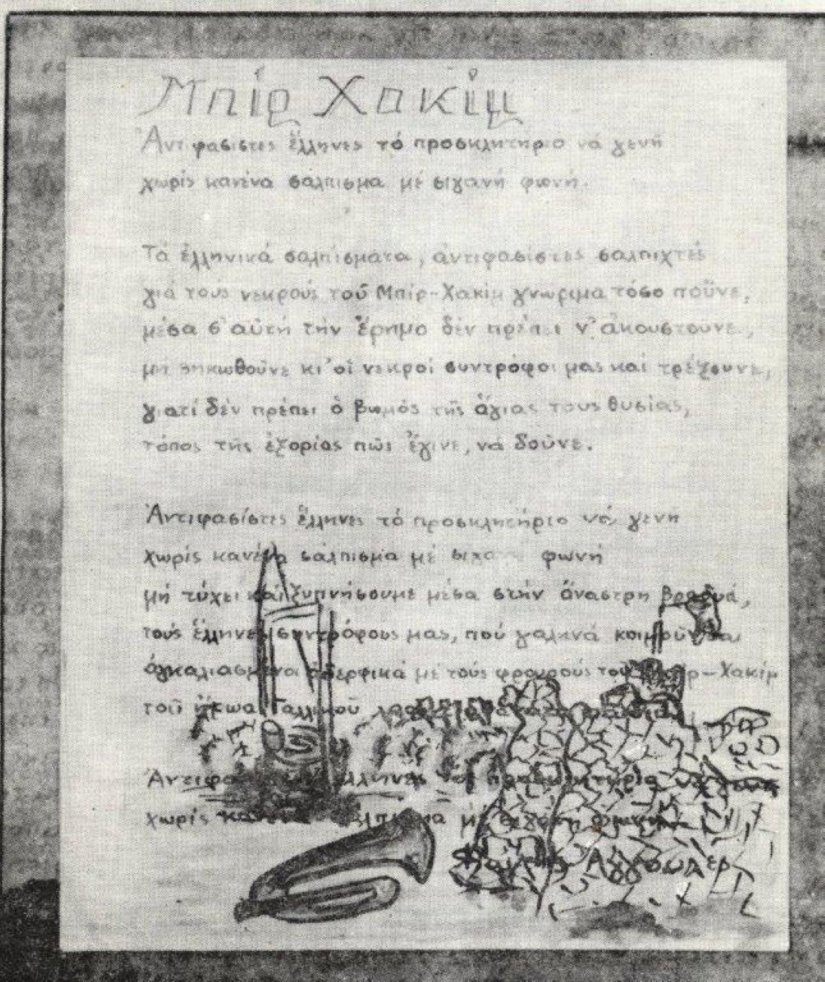 Μπίρ Χακίμ
Ἀντιφασίστες ἕλληνες τό προσκλητήριο νά γενῆ
χωρίς κανένα σάλπισμα μέ σιγανή φωνή.
Τά ἑλληνικά σαλπίσματα, ἀντιφασίστες σαλπιχτές
γιά τούς νεκρούς τοῦ Μπίρ-Χακίμ γνώριμα τόσο ποῦνε,
μέσα σ' αὐτή τήν ἔρημο δέν πρέπει ν' ἀκουστοῦνε,
μή σηκωθοῦνε κι' οἱ νεκροί συντρόφοι μας καί τρέξουνε,
γιατί δέν πρέπει ὁ βωμός τῆς ἅγιας τους θυσίας,
τόπος τῆς ἐξορίας πῶς ἔγινε, νά δοῦνε.
Ἀντιφασίστες ἕλληνες τό προσκλητήριο νά γενῆ
χωρίς κανένα σάλπισμα μέ σιγανή φωνή
μή τύχει καί ξυπνήσουμε μέσα στήν ἄναστρη βραδυά,
τούς ἕλληνες συντρόφους μας, πού γαληνά κοιμοῦνται
ἀγκαλιασμένα ἀδερφικά μέ τούς φρουρούς τοῦ Μπίρ-Χακίμ
τοῦ ἥρωα Γαλλικοῦ
Ἀντιφασίστες ἕλληνες τό προσκλητήριο νά γενῆ
χωρίς κανένα σάλπισμα μέ σιγανή φωνή